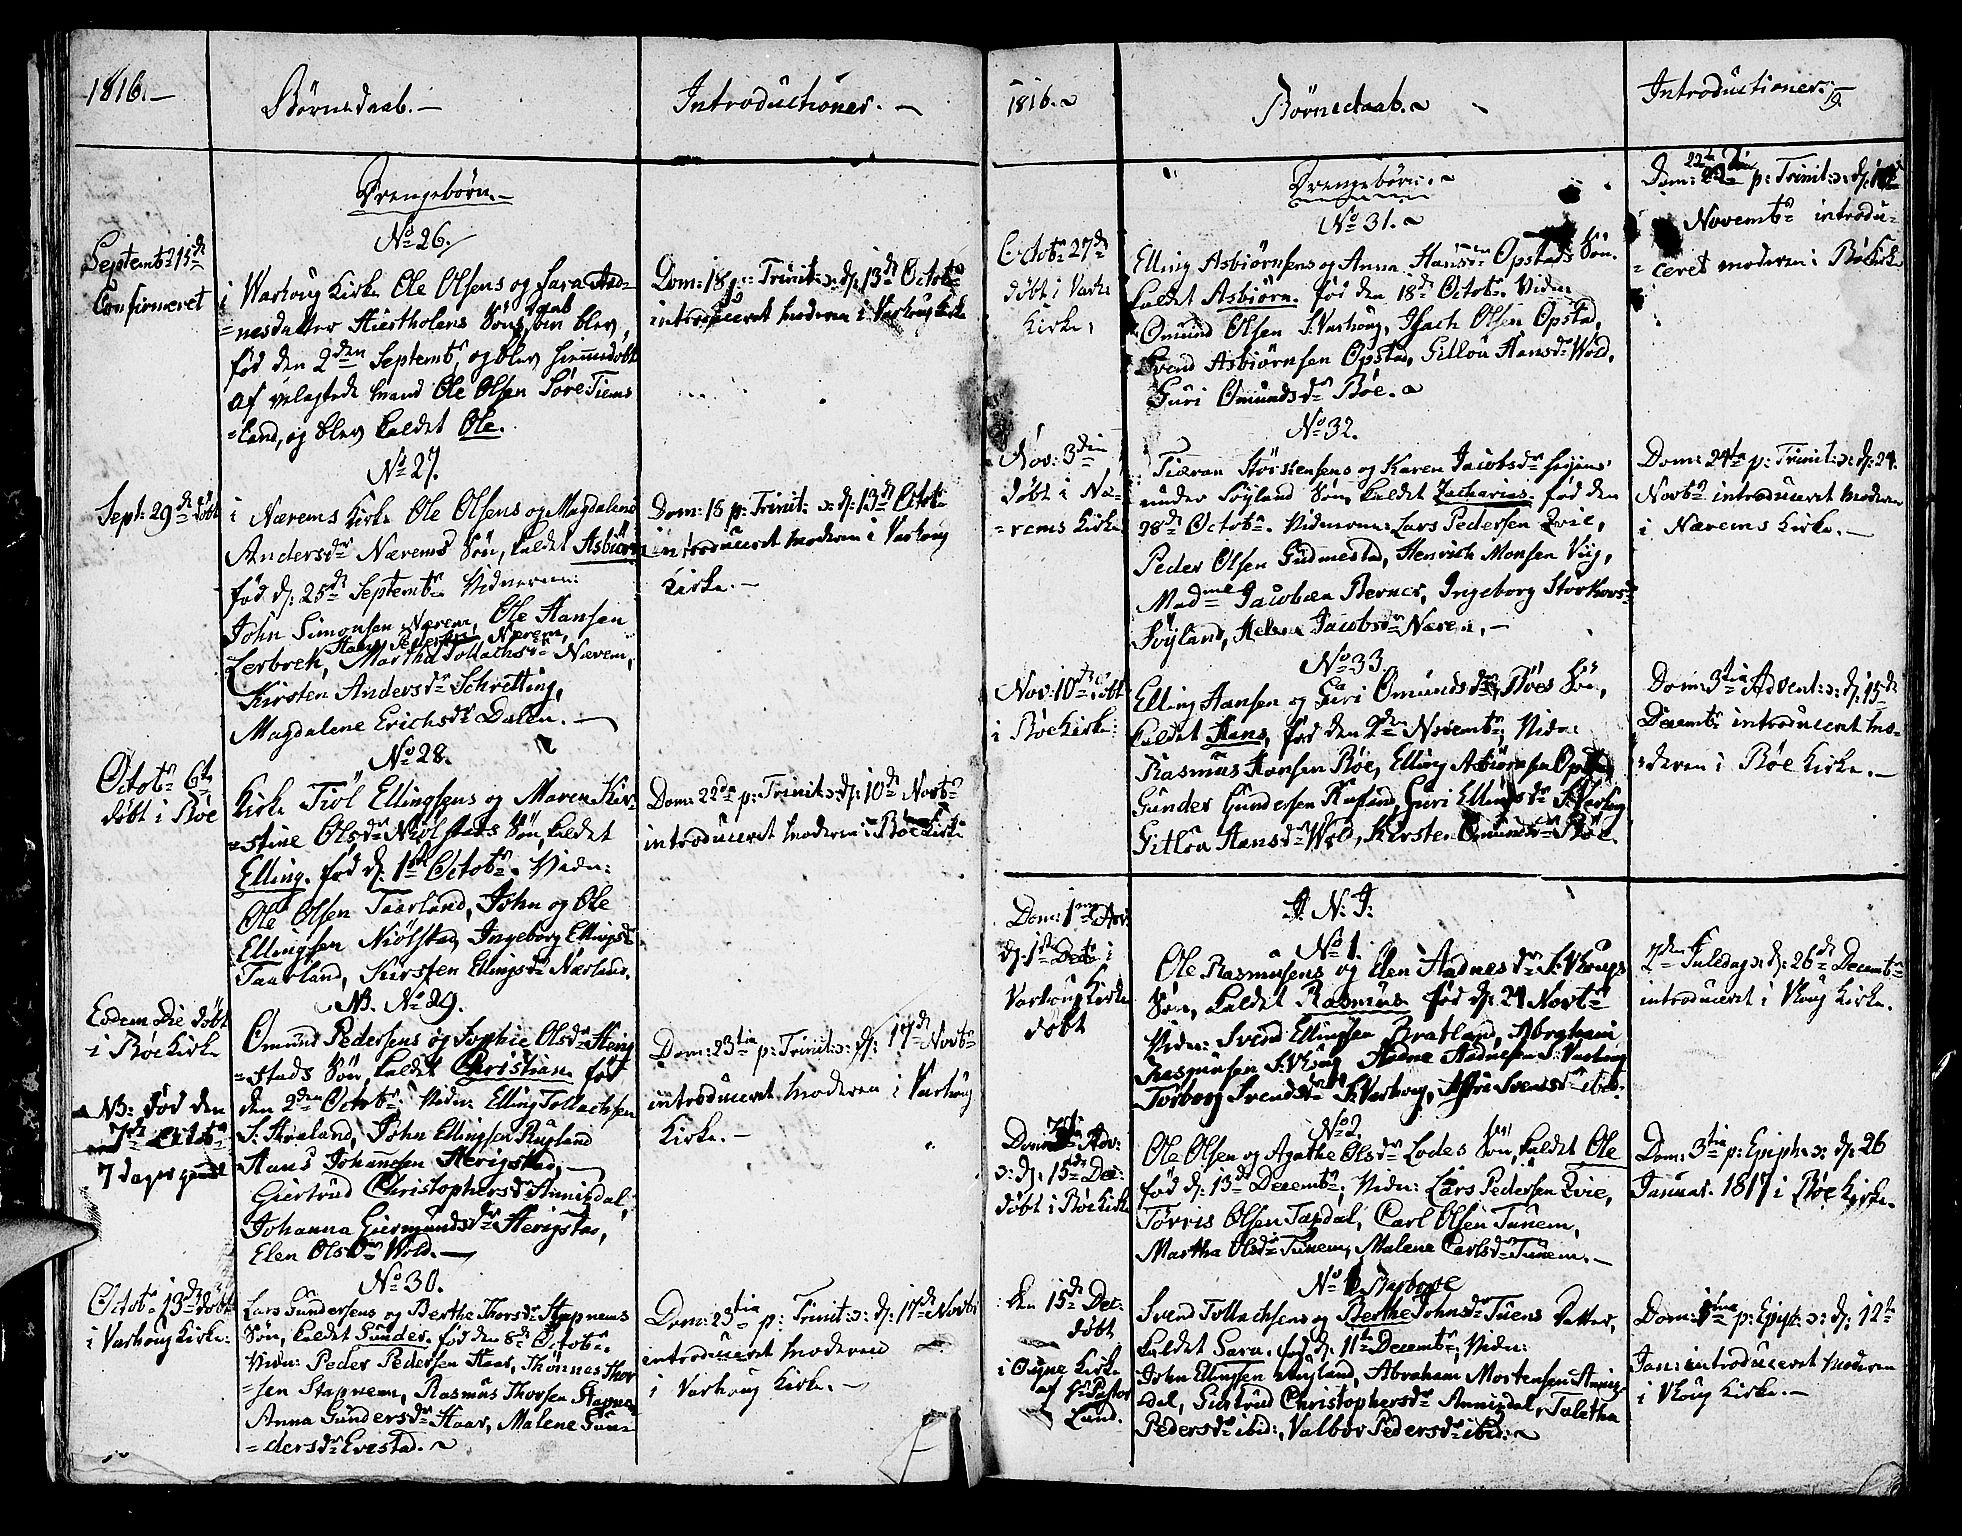 1816.-
Børnedaab.-
Introductioner.-
Drengebørn.-
No 26.
Septembr 15de
Confirmeret
i Warhoug Kirke Ole Olsens og Sara Aad-
=nesdatter Hiertholens Søns Daab, som blev
fød den 2den Septembr, og blev hiemmedøbt
af velagtede Mand Ole Olsen Søre Tiems
=land, og blev kaldet Ole.
Dom: 18 p: Trinit: ɔ: d: 13de Octobr
introduceret Moderen i Varhoug Kirke
No 27.
Sept: 29de døbt
i Nærems Kirke Ole Olsens og Magdalene
Andersdr Nærems Søn, kaldet Asbiørn
fød d: 25de Septembr Vidnerne:
John Simonsen Nærem, Ole Hansen
Hans Pedersen Nærem,
Lerbrek, Martha Tollachsdr Nærem,
Kirsten Andersdr Schretting,
Magdalene Erichsdr Dalen.-
Dom: 18 p: Trinit: ɔ: d: 13de Octobr
introduceret Moderen i Varhoug
Kirke.-
No 28.
Octobr 6te
døbt i Bøe
Kirke Tiøl Ellingsens og Maren Kir-
=stine Olsdr Niølstads Søn, kaldet
Elling. fød d: 1ste Octobr. Vidn:
Ole Olsen Taarland, John og Ole
Ellingsen Niølstad, Ingeborg Ellingsdr
Taarland, Kirsten Ellingsdr Nærland.
Dom: 22de p: Trinit: ɔ: d: 10de Novbr
introduceret Moderen i Bøe Kirke
NB. No 29.
Eodem Die døbt
i Bøe Kirke
NB: fød den
7de Octobr
7 dage gamel
Omund Pedersens og Sophie Olsdr Herig
=stads Søn, kaldet Christian fød
den 2den Octobr. Vidn: Elling Tollachsen
S: Araland, John Ellingsen Rugland
Hans Johansen Herigstad,
Giertrud Christophersdr Annisdal,
Johanna Giermundsdr Herigstad,
Elen Olsdr Wold.-
Dom: 23tia p: Trinit: ɔ: d: 17de Novbr
introduceret Moderen i Varhoug
Kirke.-
No 30.
Octobr 13de døbt
i Varhoug Kirke:
Lars Gundersens og Berthe Thorsdr Stapnems
Søn, kaldet Gunder. fød den 8de Octobr.
Vidn: Peder Pedersen Haar, Thønnes Thor
=sen Stapnem, Rasmus Thorsen Stapnem
Anna Gundersdr Haar, Malene Gun-
=dersdr Evestad.
Dom: 23tia p: Trinit: ɔ: d: 17de Novbr
introduceret Moderen
i Varhoug Kirke.-
1816.
Børnedaab.
Introductioner.-
19.
Drengebørn.
No 31.
Octobr 27de
døbt i Varh:
Kirke,
Elling Asbiørnsens og Anna Hansdr Opstads Søn.
kaldet Asbiørn. fød den 18de Octobr. Vidn:
Omund Olsen S: Varhoug, Isach Olsen Opstad,
Svend Asbiørnsen Opstad, Gitlou Hansdr Wold,
Guri Omundsdr Bøe.
Dom: 22de p: Trinit: ɔ: d: 10de
Novembr introdu-
=ceret Moderen i Bøe Kirke
No 32.
Nov: 3die
døbt i Næ-
=rems Kirke
Tiæran Størkersens og Karen Jacobsdr Hegjens
under Søyland Søn, kaldet Zacharias. fød den
28de Octobr. Vidnerne: Lars Pedersen Qvie,
Peder Olsen Gudmestad, Henrich Monsen Viig,
Madme Jacobæa Berner, Ingeborg Størkorsdr
Søyland, Helene Jacobsdr Nærem.-
Dom: 24ta p: Trinit: ɔ: d: 24.
Novbr introduceret Moderen
i Nærems Kirke.-
No 33.
Nov: 10de døbt
i Bøe Kirke:
Elling Hansen og Guri Omundsdr Bøes Søn,
kaldet Hans, fød den 2den Novembr, Vidn:
Rasmus Hansen Bøe, Elling Asbiørnsen Opstad
Gunder Gundersen Rusland, Guri Ellingsdr S: Varhog
Gitlou Hansdr Wold, Kirsten Omundsdr Bøe.
Dom: 3tia Advent: ɔ: d: 15de
Decembr introduceret Mo-
=deren i Bøe Kirke.-
A. N. J:
No 1.
Dom: 1ma Adv:
d: 1ste Decbr i
Varhoug Kirke
døbt
Ole Rasmusens og Elen Aadnesdr S: Vhougs
Søn, kaldet Rasmus. fød d: 24 Novbr
Vidn: Svend Ellingsen Bratland, Abraham
Rasmusen S: Vhoug, Aadne Aadnesen S: Varhoug
Torborg Svendsdr S: Varhoug, Asfri Svendsdr ibid.
2den Juledag ɔ: d: 26de Decembr
introduceret i Vhoug Kirke.
No 2.
Dom: 3tia Adv:
ɔ: d: 15de Dec:
døbt i Bøe Kirke
Ole Olsen og Agathe Olsdr Lodes Søn, kaldet Ole
fød d: 13de Decembr, Vidn: Lars Pedersen Qvie,
Tørris Olsen Tapdal, Carl Olsen Tunem,
Martha Olsdr Tunem, Malene Carlsdr Tunem.-
Dom: 3tia p: Epiph: ɔ: d: 26
Januar. 1817 i Bøe Kirke.
den 15de Dec:
døbt
i Ogne Kirke
af Hr Pastor
Lund.
Svend Tollachsens og Berthe Johnsdr Tuens Datter,
kaldet Sara. fød d: 11te Decembr, Vidn:
John Ellingsen Rugland, Abraham Mortensen Annis-
dal, Giertrud Christophersdr Annisdal, Taletha
Pedersdr ibid:, Valbor Pedersdr ibid:
Dom: 1ma p: Epiph: ɔ: d: 12te
Jan: introduceret Moderen
i Vhoug Kirke.-